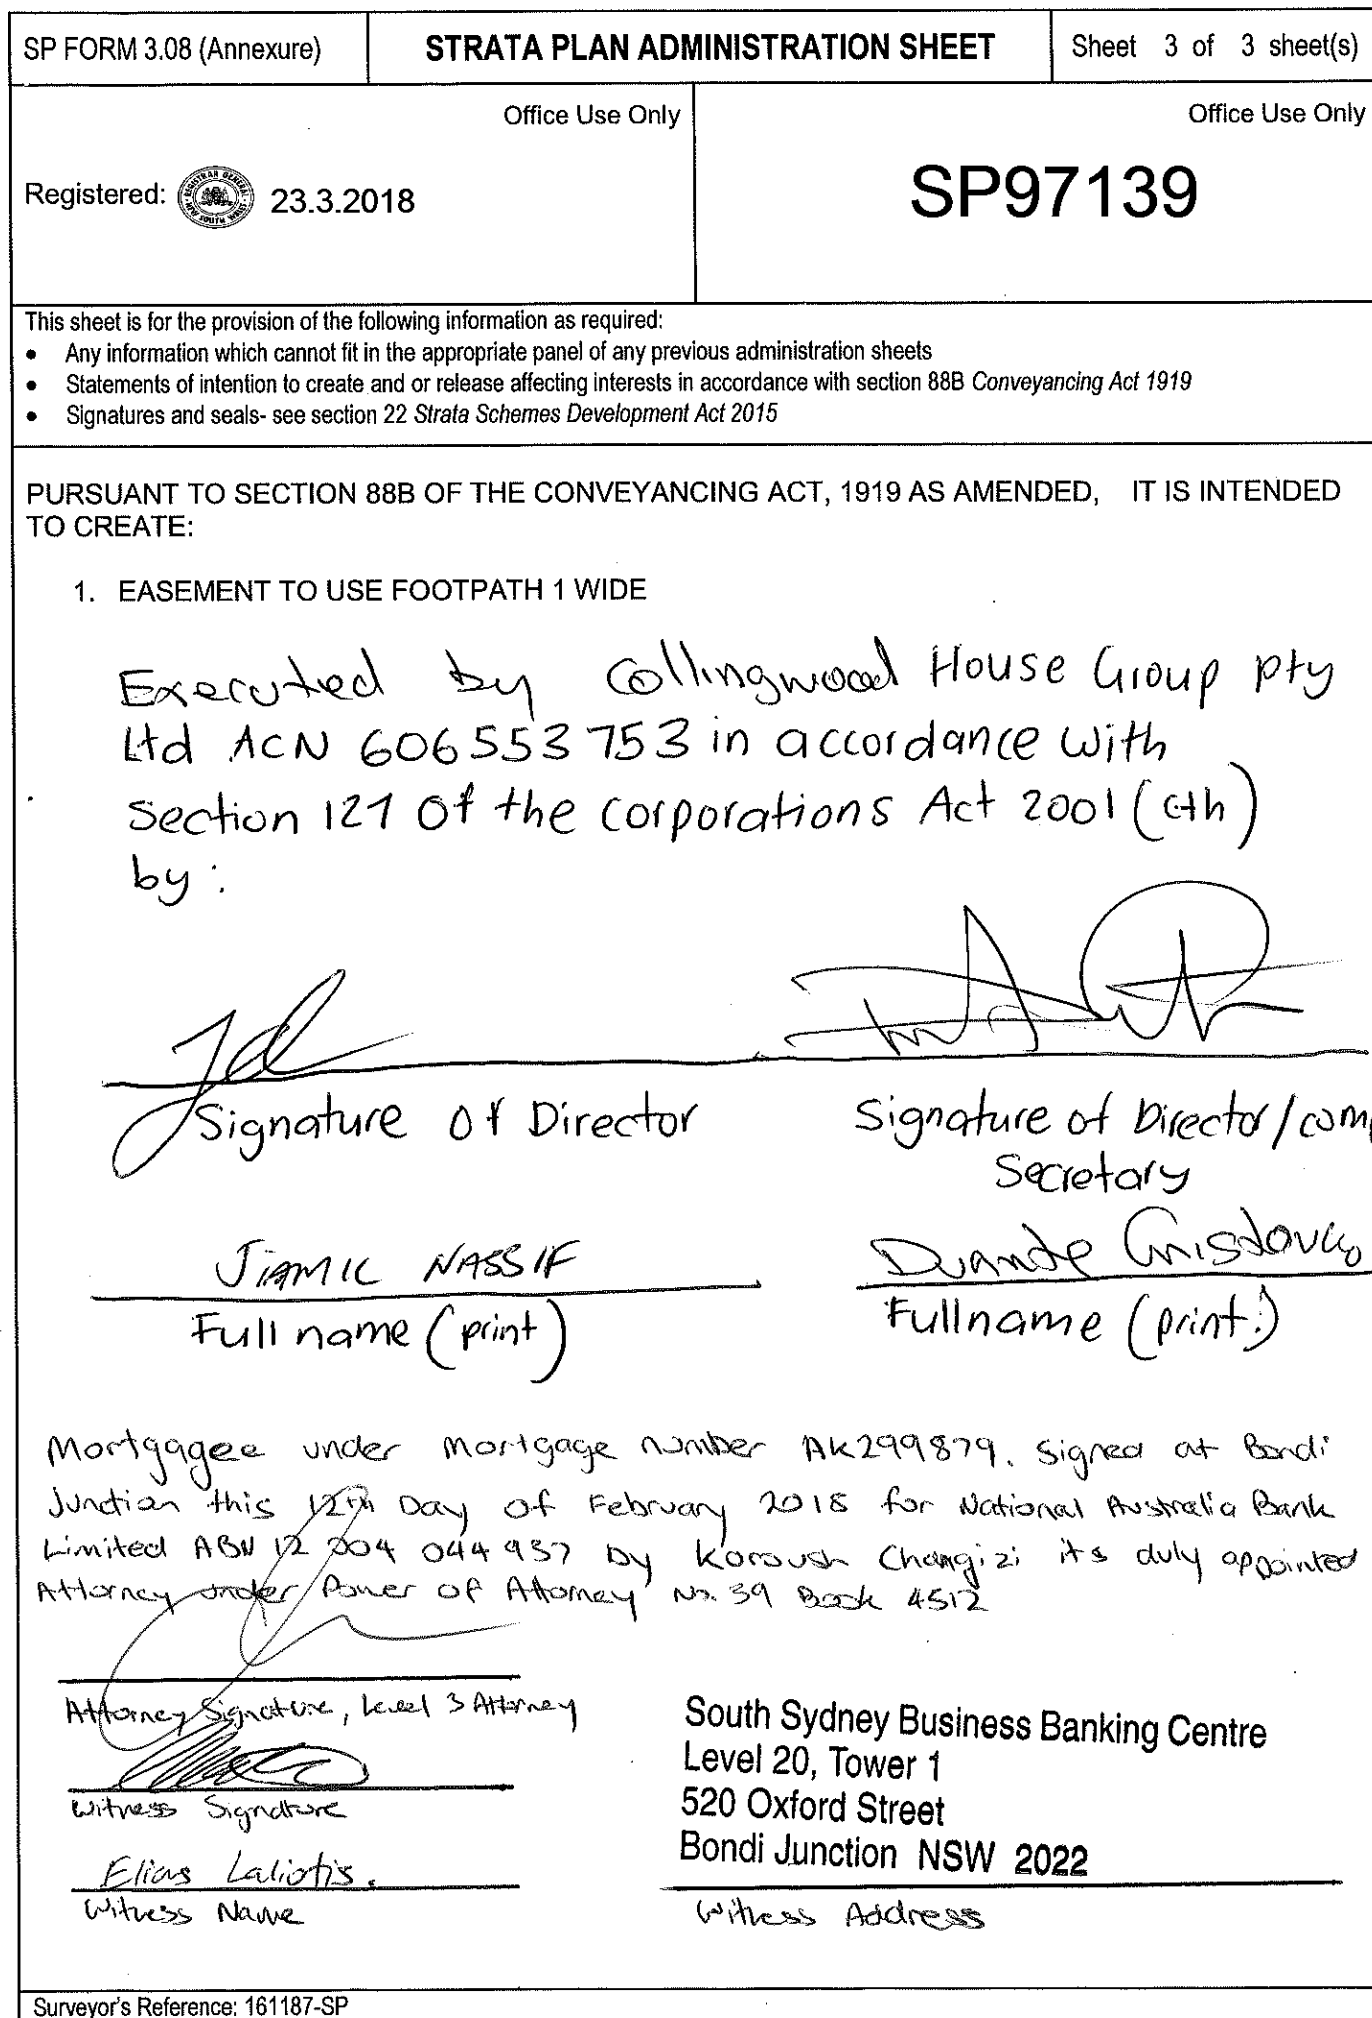 SP FORM 3.08 (Annexure)
STRATA PLAN ADMINISTRATION SHEET
Sheet 3 of 3 sheet(s)
Office Use Only
Registered: 23.3.2018
Office Use Only
SP97139
This sheet is for the provision of the following information as required:
• Any information which cannot fit in the appropriate panel of any previous administration sheets
• Statements of intention to create and or release affecting interests in accordance with section 88B Conveyancing Act 1919
• Signatures and seals- see section 22 Strata Schemes Development Act 2015
PURSUANT TO SECTION 88B OF THE CONVEYANCING ACT, 1919 AS AMENDED, IT IS INTENDED
TO CREATE:
1. EASEMENT TO USE FOOTPATH 1 WIDE
Executed by Collingwood House Group pty
Ltd ACN 606 553 753 in accordance with
Section 127 of the corporations Act 2001 (cth)
by :
Signature of Director
Signature of Director/com
Secretary
JIAMIL NASSIF
Full name (print)
Full name (print:)
Mortgagee under Mortgage number AK299879. Signed at Bondi
Junction this 12th Day of February 2018 for National Australia Bank
Limited ABN 12 004 044 937 by Koroush Changizi its duly appointed
Attorney under Power of Attorney No. 39 Book 4512
Attorney Signature, Level 3 Attorney
Witness Signature
Elias Laliotis.
Witness Name
South Sydney Business Banking Centre
Level 20, Tower 1
520 Oxford Street
Bondi Junction NSW 2022
Witness Address
Surveyor's Reference: 161187-SP